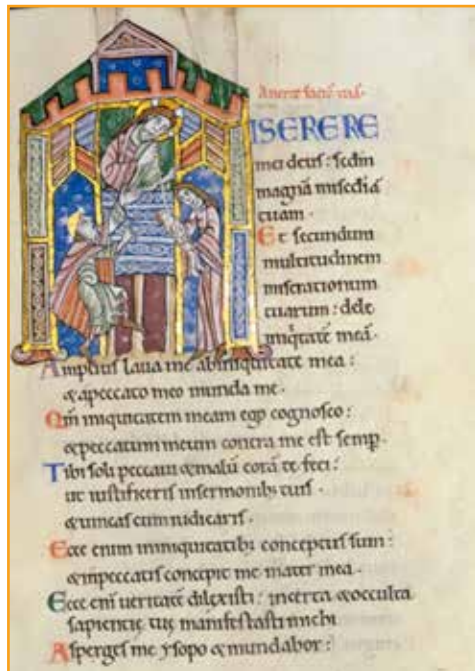 ISERERE
mei deus : sedm
magnā misedīā
tuam .
Et secundum
multitudinem
miserationum
tuarum : dele
iniq̄tatē meā .
Amplius laua me abiniquitate mea :
& apeccato meo munda me .
Qm̄ iniquitatem meam ego cognosco :
& peccatum meum contra me est semp .
Tibi soli peccaui & malū corā te feci :
ut iustificeris insermonibꝫ tuis .
& uincas cum iudicaris .
Ecce enim ininiquitatibꝫ conceptus sum :
& inpeccatis concepit me mater mea .
Ecce eni ueritatē dilexisti : incerta & occulta
sapientię tuę manifestasti michi
Asperges me ysopo & mundabor :